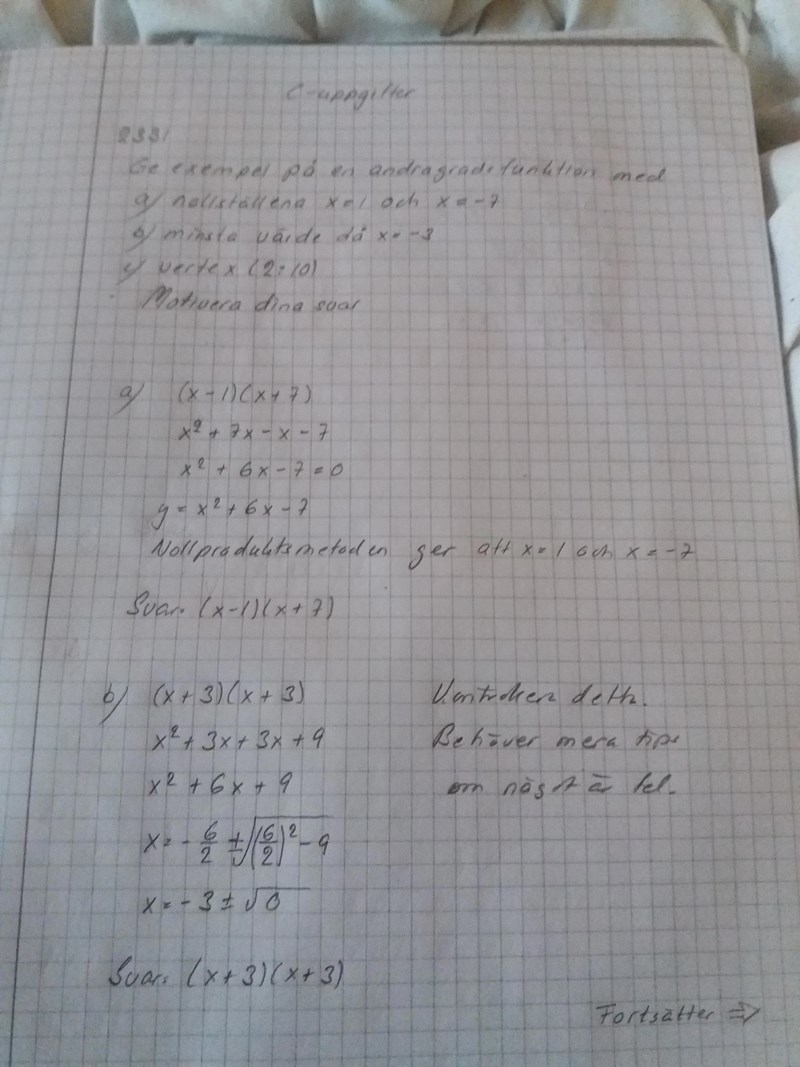 C-uppgifter
2331
Ge exempel på en andragradsfunktion med
a) nollställena x=1 och x=-7
b) minsta värde då x=-3
c) vertex (2;10)
Motivera dina svar
a) (x-1)(x+7)
x² + 7x - x - 7
x² + 6x - 7 = 0
y = x² + 6x - 7
Nollproduktsmetoden ger att x=1 och x=-7
Svar: (x-1)(x+7)
b) (x+3)(x+3) Kontrollera detta.
x² + 3x + 3x + 9 Behöver mera tips
x² + 6x + 9 om något är fel.
x = -6/2 ± √((6/2)² - 9)
x = -3 ± √0
Svar: (x+3)(x+3)
Fortsätter ⇒